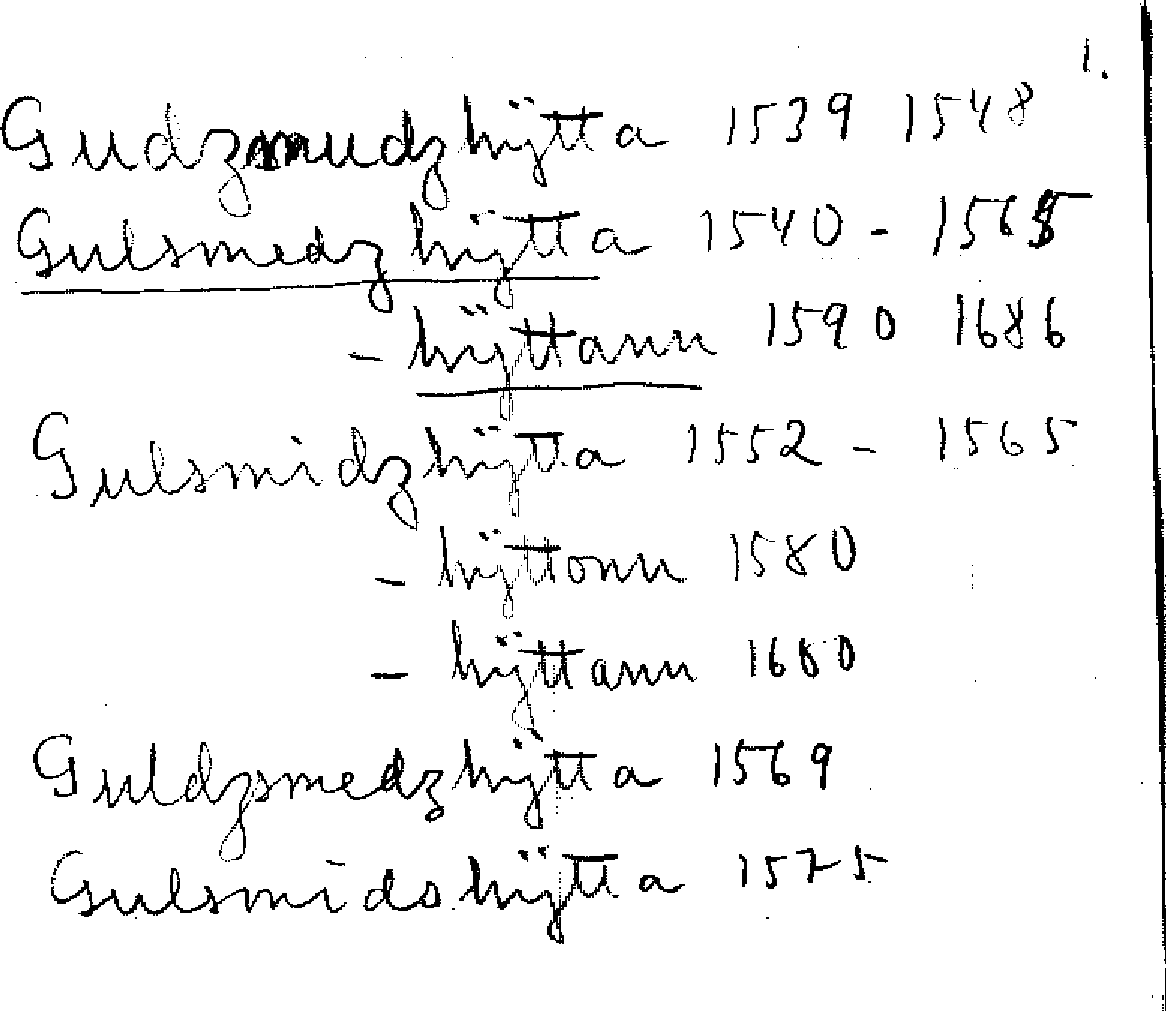 1.
Gudzmudzhÿtta 1539 1548
Gulsmedzhÿtta 1540 - 1565
- hÿttann 1590 1686
Gulsmidzhÿtta 1552 - 1565
- hÿttonn 1580
- hÿttann 1680
Guldzsmedzhÿtta 1569
Gulsmidshÿtta 1575